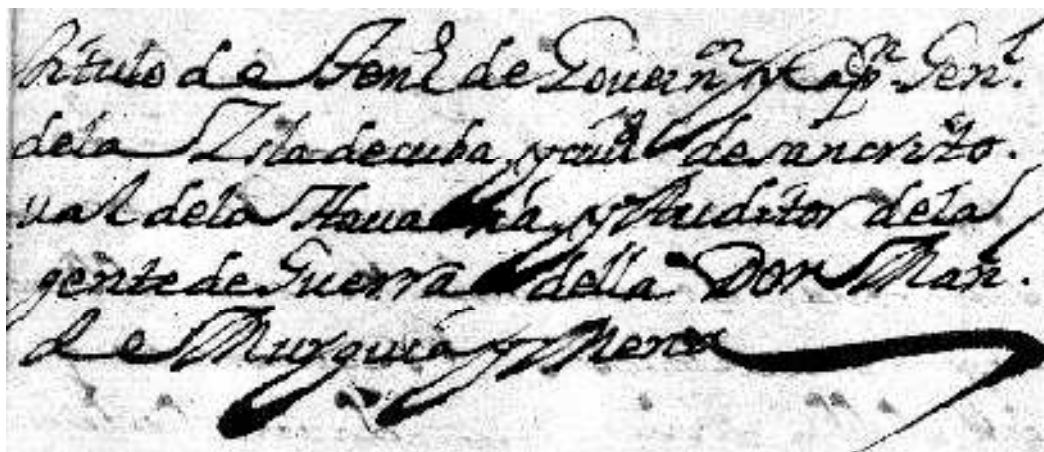 título de Tenᵉ de Gouernᵒʳ y Capⁿ Genˡ.
dela Isla de cuba, y ciuᵈ de san cristo.
ual dela Hauana, y Auditor dela
gente de Guerra della Don Man.
de Murguia y Mena